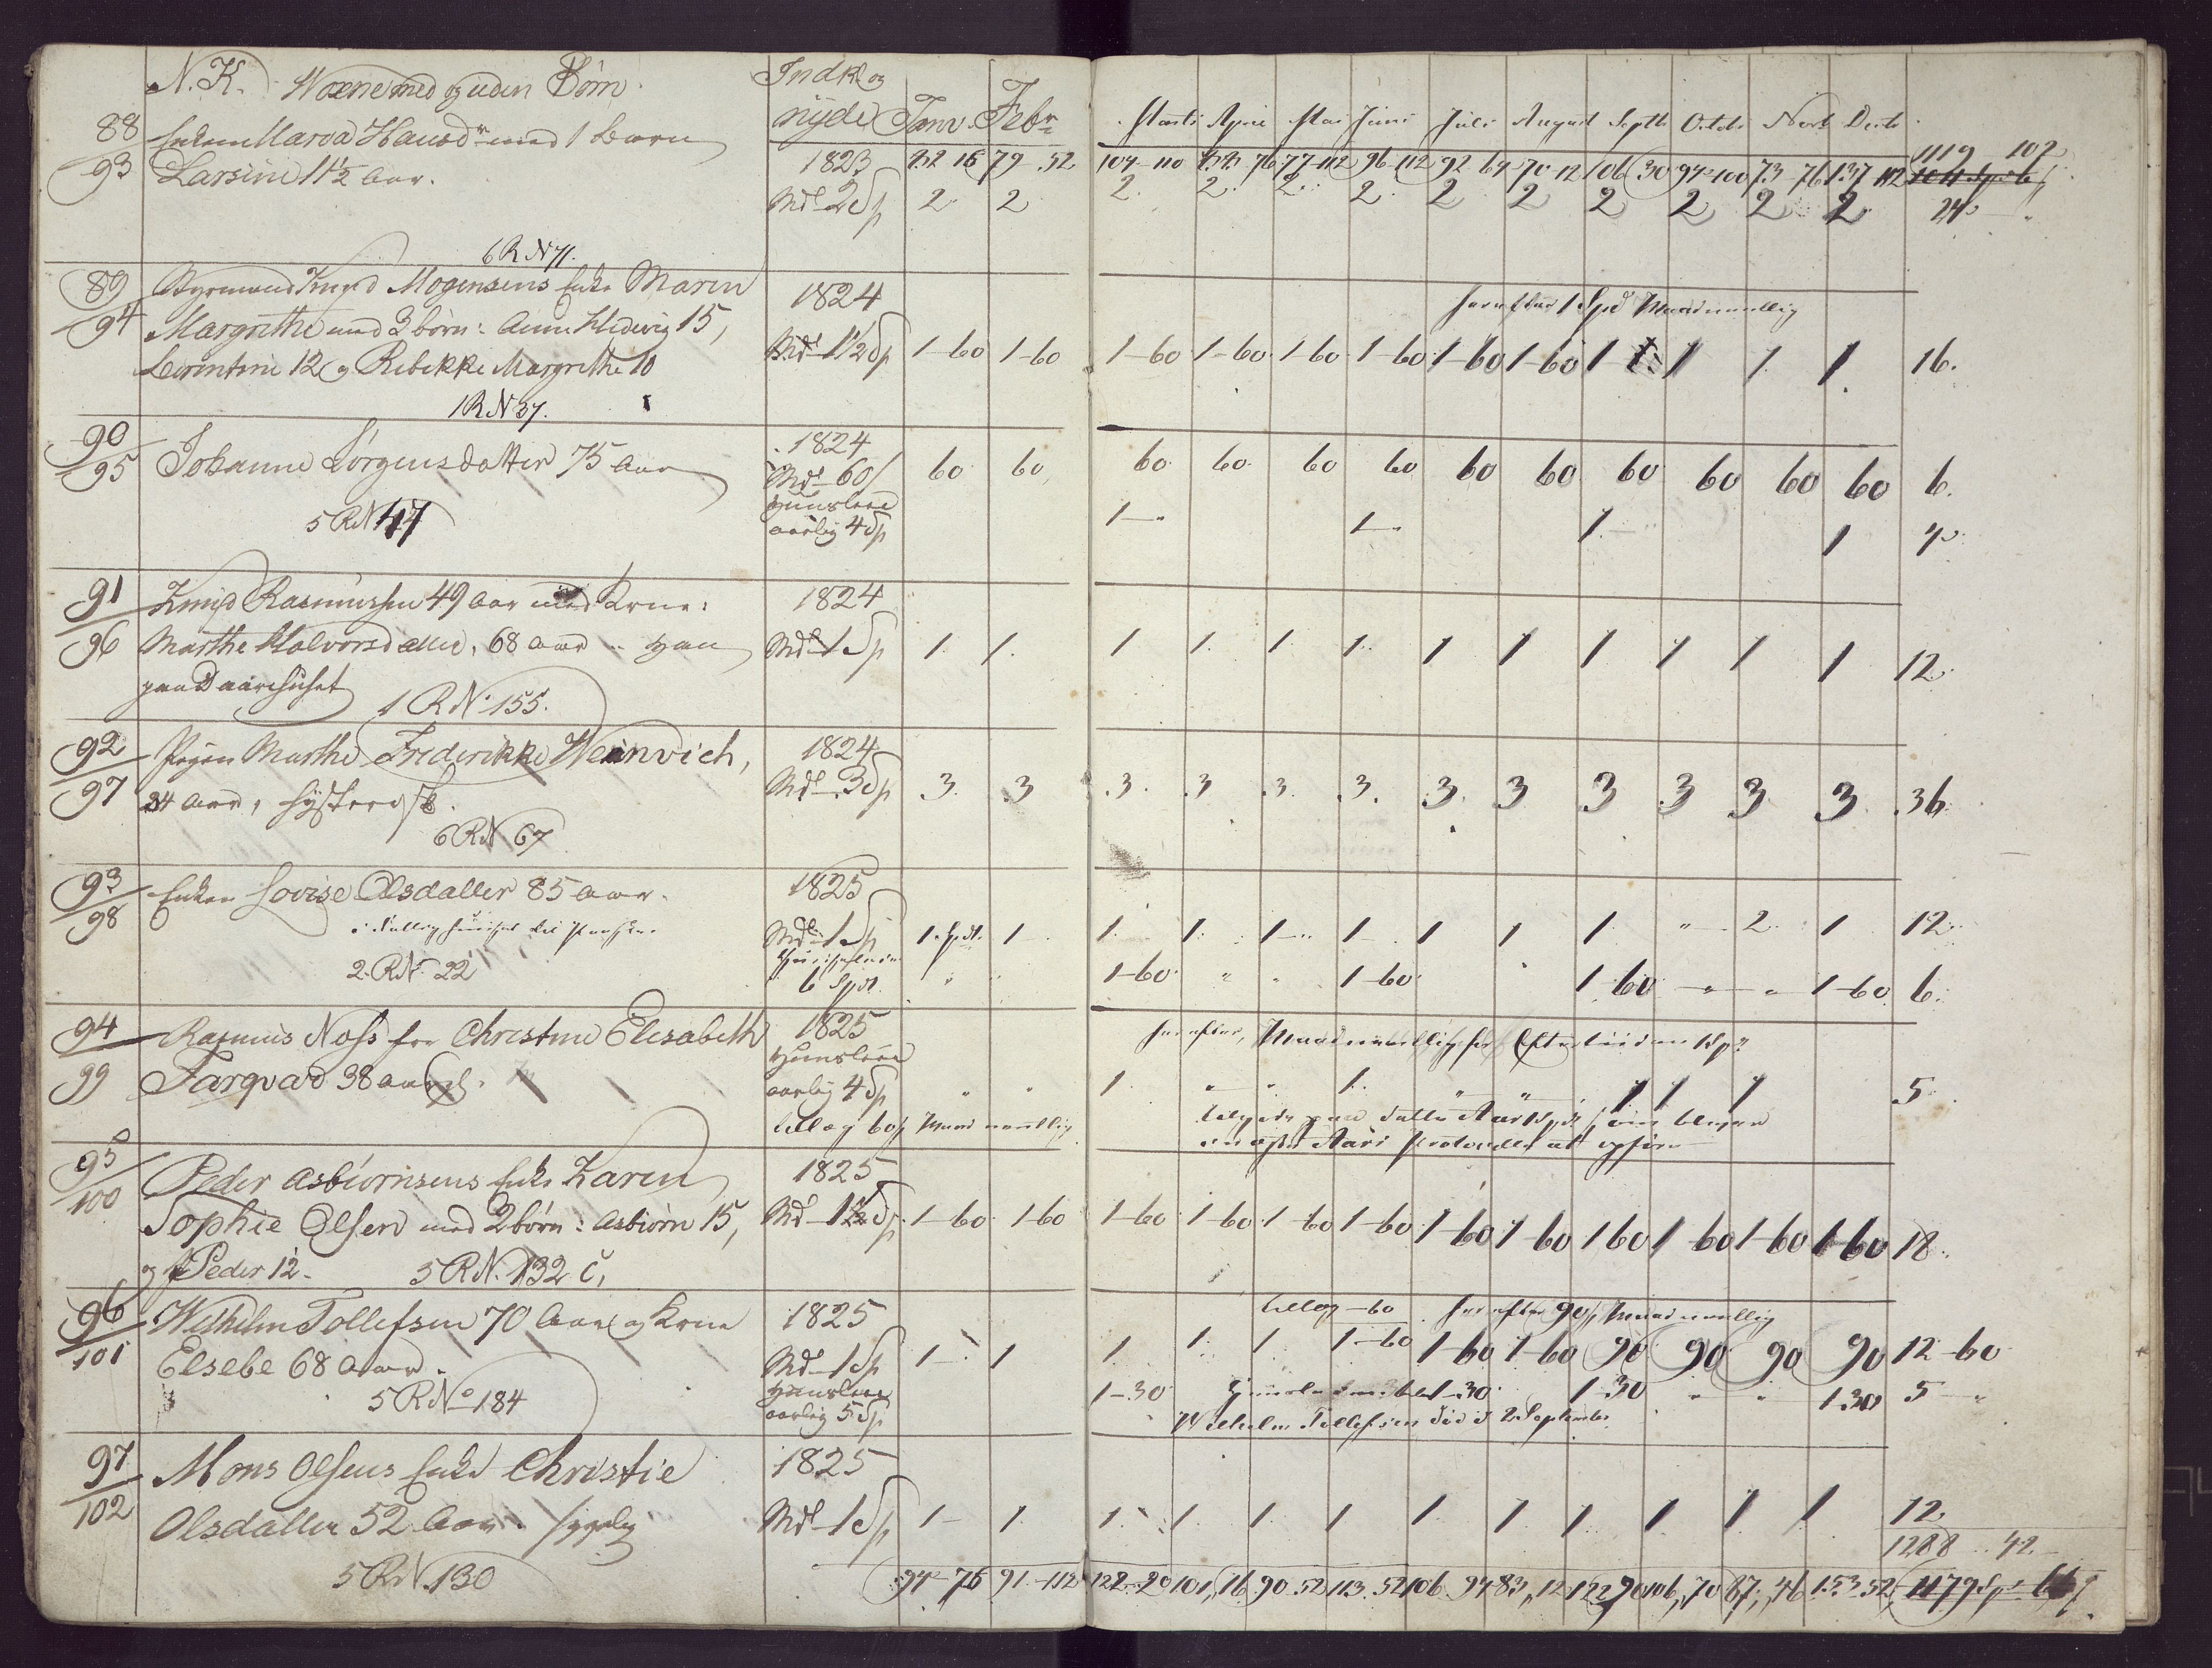 N. K. Woxne med og uden Børn. Indk og nyde Janv. Febr Marti April Mai Juni Juli August Septb Octob Novb Decb
88 Enken Maroa Hansdr med 1 Barn 1823 82 16 79 52 104 110 76 77 112 96 112 92 64 70 12 106 30 94 100 73 76 137 112 1119 102
93 Larsine 1 1/2 Aar. Mdl 2 Sp 2 2 2 2 2 2 2 2 2 2 2 2 24
6 R N 71.
89 Knud Mogensens Enke Maren 1824 herefter 1 Spd Maanedlig
94 Margrethe med 3 børn: Anne Hedevig 15, Mdl 1 1/2 Sp 1-60 1-60 1-60 1-60 1-60 1-60 1-60 1-60 1 1 1 1 16.
Lorentine 12 og Rebekke Margrethe 10
1 R N 37.
90 Johanne Jørgensdatter 75 Aar 1824 60 60 60 60 60 60 60 60 60 60 60 60 6.
95 Mdl 60
5 R N 47 Huusleie aarlig 4 Sp 1 1 1 1 4
91 Knud Rasmussen 49 Aar med Kone: 1824
96 Marthe Halvorsdatter, 68 Aar .. Han Mdl 1 Sp 1. 1. 1 1. 1. 1. 1 1 1 1 1 1 12.
paa Daarehuset
1 R N 155.
92 Pigen Marthe Friderikke Weinvich, 1824
97 34 Aar, Mdl 3 Sp 3. 3 3. 3 3. 3. 3. 3 3 3 3 3 36
6 R N 67
93 Enken Lovise Olsdatter 85 Aar. 1825
98 Mdl 1 Sp 1 Spd. 1 1. 1. 1 1 1 1 1 " 2. 1 12.
2 R N. 22 6 Spd. " 1-60 " " 1-60 1 60 " " 1-60 6.
94 Rasmus Noss for Christine Elisabeth 1825 herefter, Maanedlig 1 Sp
99 Farqvar 38 Aar Huusleie aarlig 4 Sp " " 1. " " 1. " " 1 1 1 5
tillæg 60 Maanedlig
95 Peder Asbiørnsens Enke Karen 1825
100 Sophie Olsen med 2 børn: Asbiørn 15, Mdl 1 1/2 Sp 1-60 1-60 1-60 1-60 1-60 1-60 1-60 1-60 1 60 1 60 1-60 1-60 18
og Peder 12. 5 R N. 132 C,
96 Wilhelm Tollefsen 70 Aar og Kone 1825 tillæg -60 herefter 90 Maanedlig
101 Elsebe 68 Aar. Mdl 1 Sp 1 1 1. 1. 1 1-60 1-60 1-60 90 90 90 90 12-60
5 R No 184 Huusleie aarlig 5 Sp 1-30 1-30 1-30 " " 1 30 5
Wilhelm Tollefsen død d 2 September
97 Mons Olsens Enke Christie 1825
102 Olsdatter 52 Aar. sygelig Mdl 1 Sp 1 1. 1. 1. 1. 1 1. 1 1. 1 1 1 12.
5 R N. 130 1288 42
94 76 91 112 122 20 101 16 90 52 113 52 106 94 83 12 122 90 106 70 87 46 153 52 1179 Sp